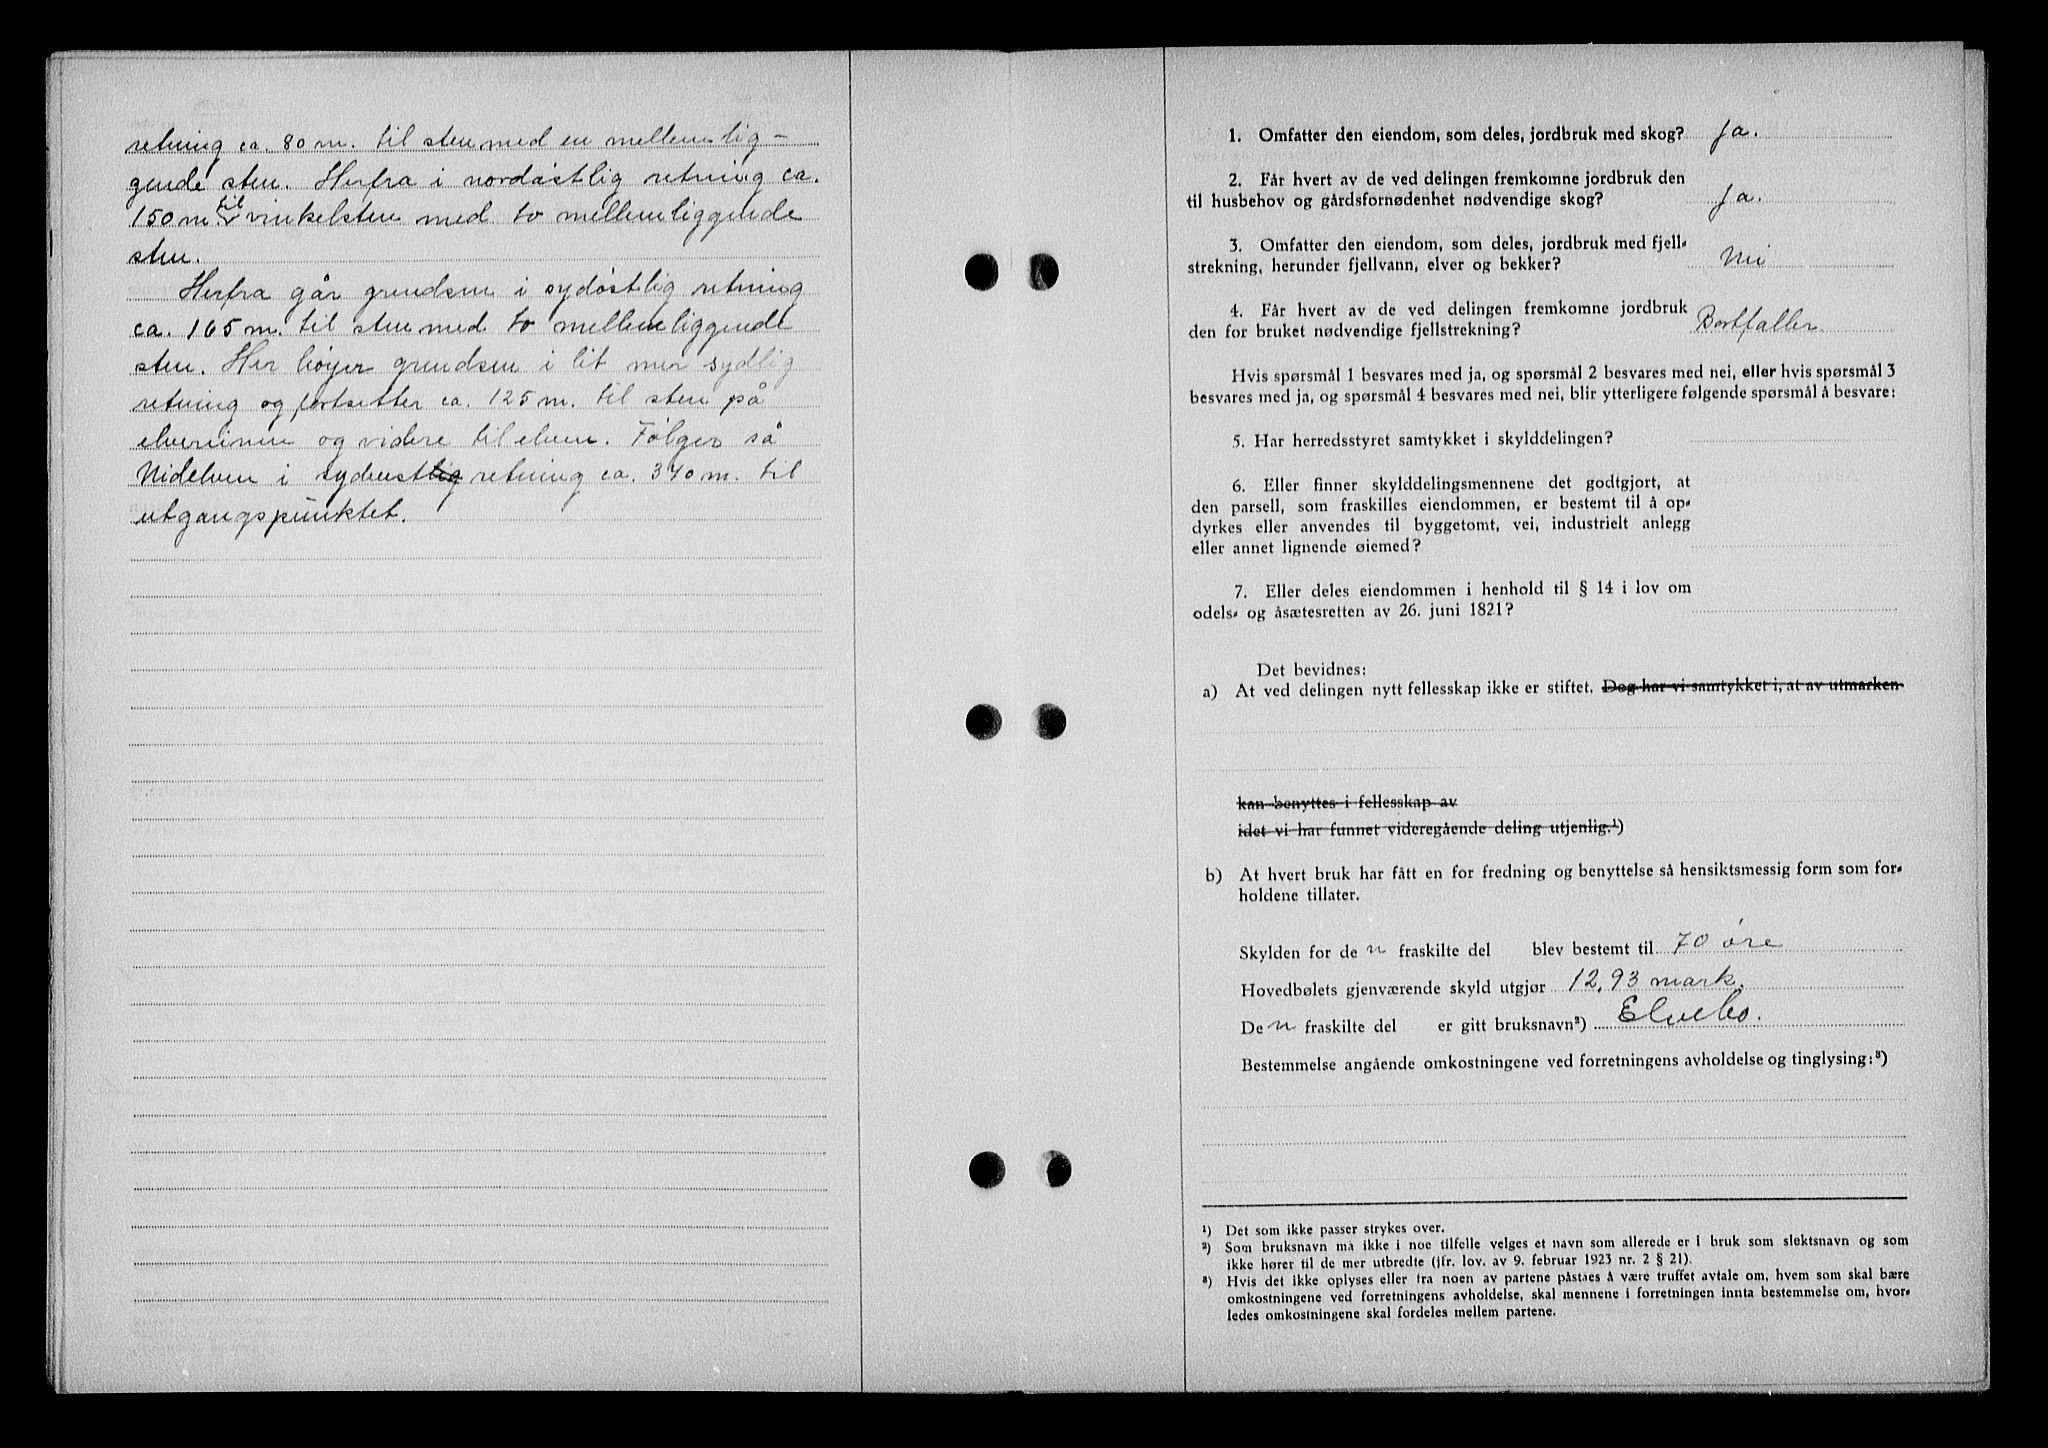 retning ca. 80 m. til sten med en mellemlig-
gende sten. Herfra i nordøstlig retning ca.
150 m til vinkelsten med to mellemliggende
sten.
Herfra går grendsen i sydøstlig retning
ca. 165 m. til sten med to mellemliggende
sten. Her bøyer grendsen i lit mer sydlig
retning og fortsetter ca. 125 m. til sten på
og videre til elven. Følger så
Nidelven i sydvestlig retning ca. 340 m. til
utgangspunktet.
1. Omfatter den eiendom, som deles, jordbruk med skog? Ja.
2. Får hvert av de ved delingen fremkomne jordbruk den
til husbehov og gårdsfornødenhet nødvendige skog? Ja.
3. Omfatter den eiendom, som deles, jordbruk med fjell-
strekning, herunder fjellvann, elver og bekker? Nei
4. Får hvert av de ved delingen fremkomne jordbruk
den for bruket nødvendige fjellstrekning? Bortfaller.
Hvis spørsmål 1 besvares med ja, og spørsmål 2 besvares med nei, eller hvis spørsmål 3
besvares med ja, og spørsmål 4 besvares med nei, blir ytterligere følgende spørsmål å besvare:
5. Har herredsstyret samtykket i skylddelingen?
6. Eller finner skylddelingsmennene det godtgjort, at
den parsell, som fraskilles eiendommen, er bestemt til å op-
dyrkes eller anvendes til byggetomt, vei, industrielt anlegg
eller annet lignende øiemed?
7. Eller deles eiendommen i henhold til § 14 i lov om
odels- og åsætesretten av 26. juni 1821?
Det bevidnes:
a) At ved delingen nytt fellesskap ikke er stiftet. Dog har vi samtykket i, at av utmarken
kan benyttes i fellesskap av
idet vi har funnet videregående deling utjenlig.¹)
b) At hvert bruk har fått en for fredning og benyttelse så hensiktsmessig form som for-
holdene tillater.
Skylden for de n fraskilte del blev bestemt til 70 øre
Hovedbølets gjenværende skyld utgjør 12,93 mark.
De n fraskilte del er gitt bruksnavn²) Elvebo.
Bestemmelse angående omkostningene ved forretningens avholdelse og tinglysing:³)
¹) Det som ikke passer strykes over.
²) Som bruksnavn må ikke i noe tilfelle velges et navn som allerede er i bruk som slektsnavn og som
ikke hører til de mer utbredte (jfr. lov. av 9. februar 1923 nr. 2 § 21).
³) Hvis det ikke oplyses eller fra noen av partene påstaes å være truffet avtale om, hvem som skal bære
omkostningene ved forretningens avholdelse, skal mennene i forretningen innta bestemmelse om, hvor-
ledes omkostningene skal fordeles mellem partene.